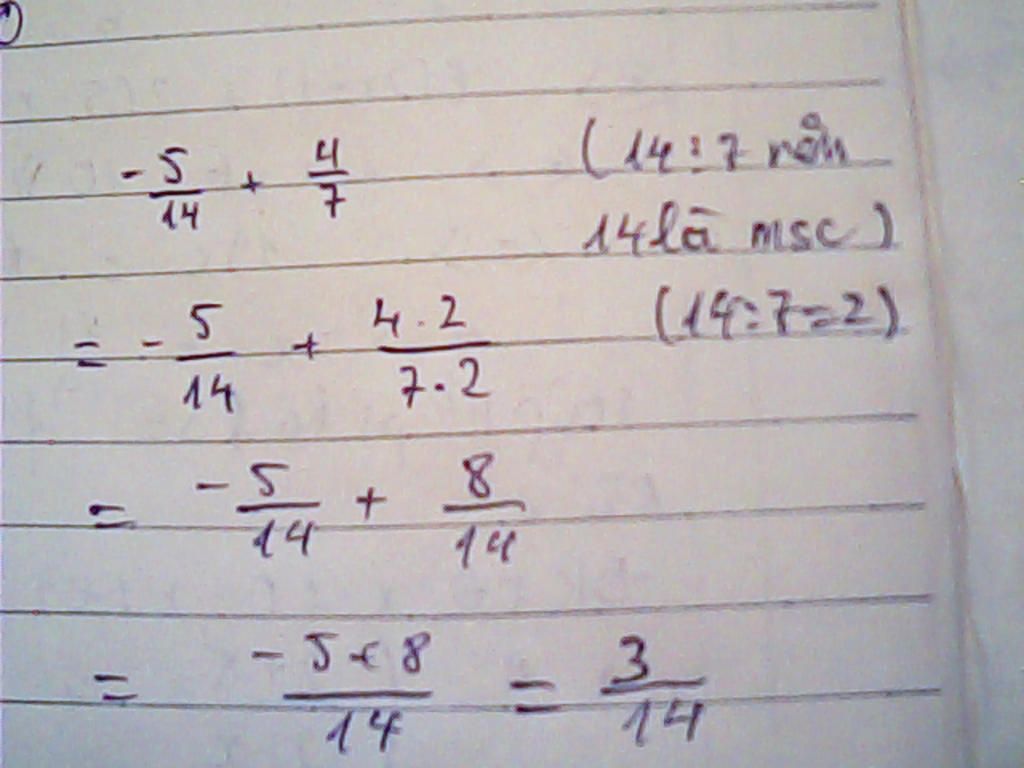 -5/14 + 4/7 (14:7 nên
14 là msc)
= -5/14 + 4.2/7.2 (14:7=2)
= -5/14 + 8/14
= -5+8/14 = 3/14